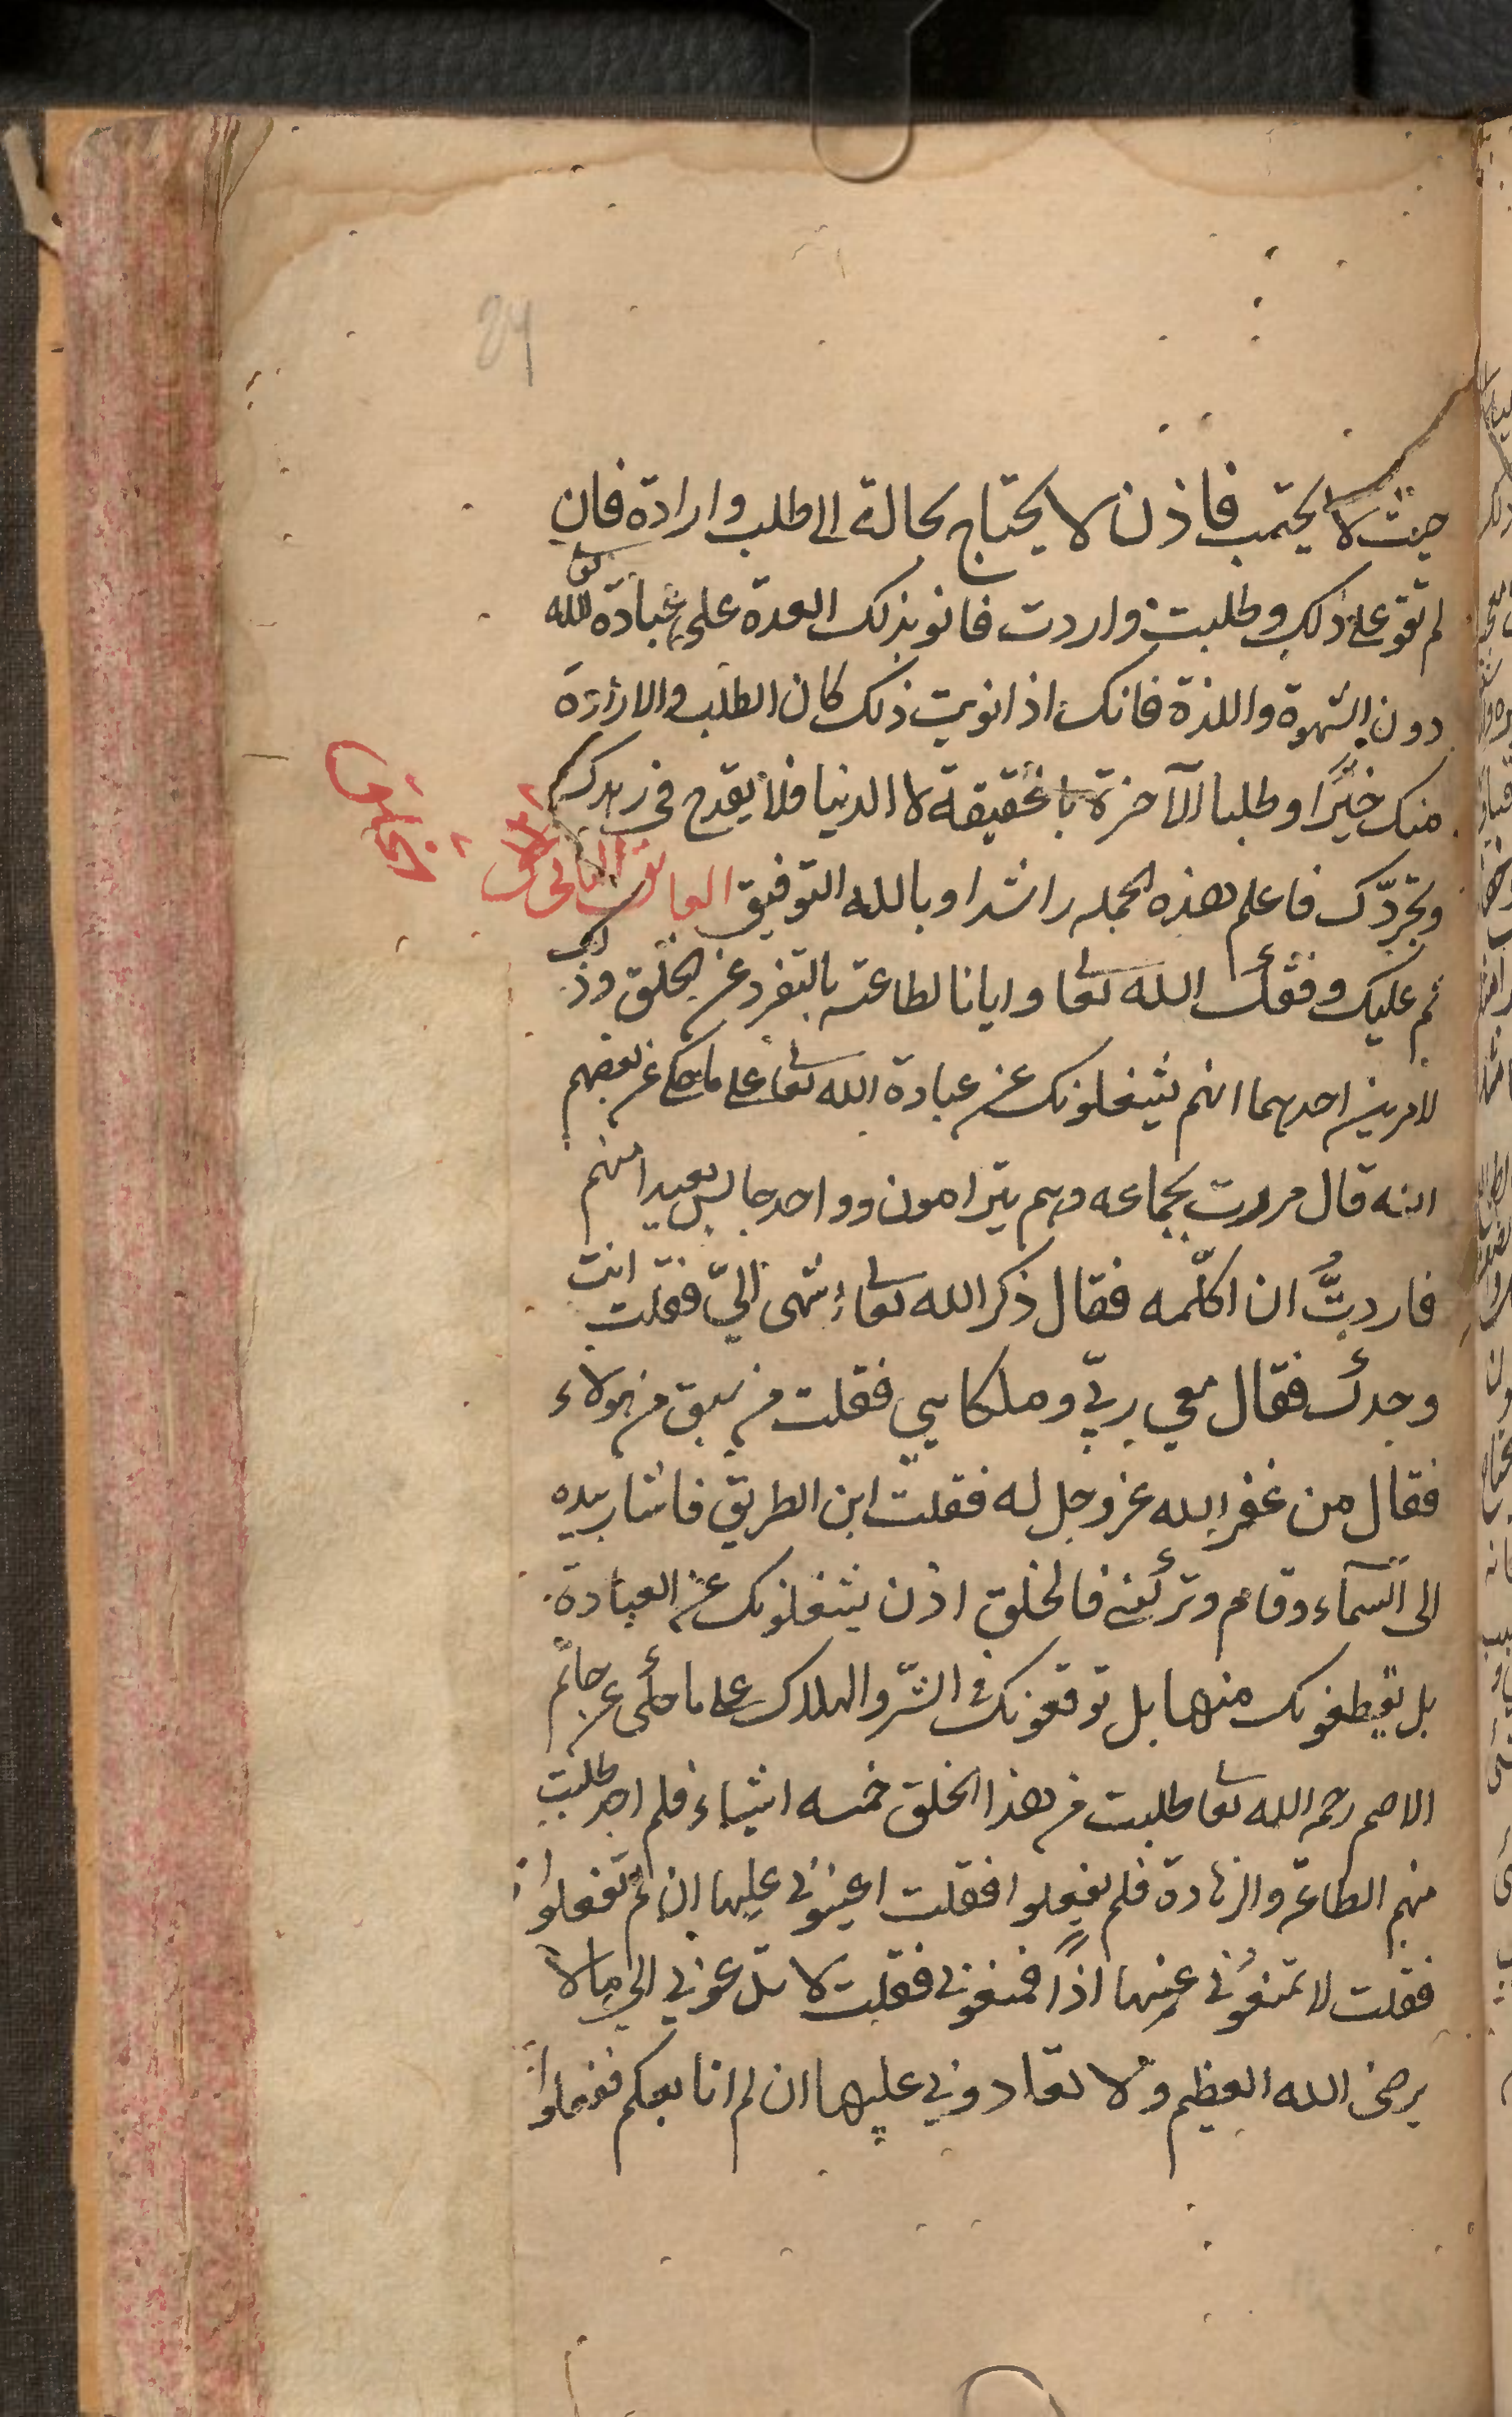 24
حيث لا يحتسب فاذن لا يحتاج بحالة الى طلب وارادة فان
لم تقو على ذلك وطلبت واردت فانو بذلك العدة على عبادة الله تعالى
دون الشهوة واللذة فانك اذا نويت ذلك كان الطلب والارادة
منك خيرًا وطلبا الآخرة بالحقيقة لا الدنيا فلا يقدح في زهدك
وتجرّدك فاعلم هذه الجمله راشدا وبالله التوفيق العائق الثاني الخلق
الخلق
ثم عليك وفقك الله تعا وايانا لطاعته بالتفرد عن الخلق وذلك
لامرين احدهما انهم يشغلونك عن عبادة الله تعا على ما حكي عن بعضهم
انه قال مررت بجماعه وهم يترامون وواحد جالس بعيدا منهم
فاردتُّ ان اكلّمه فقال ذكر الله تعا اشهى اليّ فقلت انت
وحدك فقال معي ربّي وملكايي فقلت من سبق من هولاء
فقال من غفر الله عز وجل له فقلت اين الطريق فاشار بيده
الى السّمآء وقام وتركني فالخلق اذن يشغلونك عن العبادة
بل يقطعونك منها بل توقعونك في الشّر والهلاك على ما حكى عن حاتم
الاصم رحمه الله تعا طلبت من هذا الخلق خمسه اشياء فلم اجد طلبت
منهم الطاعة والزهادة فلم يفعلوا فقلت اعينوني عليها ان لم تفعلوا
فقلت لا تمنعوني عنها اذًا فمنعوني فقلت لا تدعوني الى ما لا
يرضى الله العظيم ولا تعادوني عليها ان لم اتابعكم ففعلوا